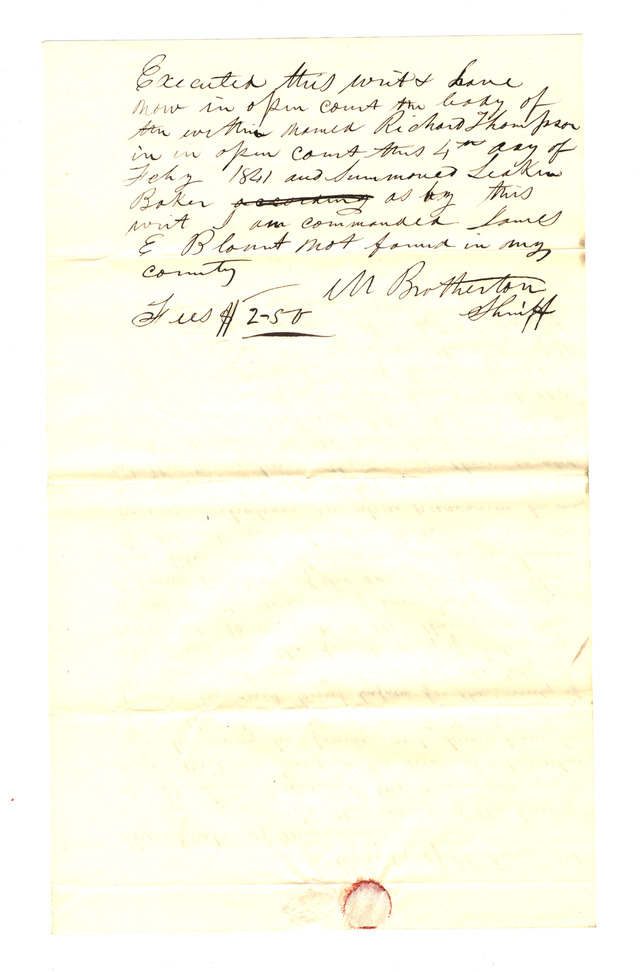 Executed this writ & have
now in open court the body of
the within named Richard Thompson
in in open court this 4th day of
Feby 1841 and Summoned Leakin
Baker according as by this
writ I am commanded James
E Blount not found in my
county
M Brotherton
Fees $ 2-50 Shriff